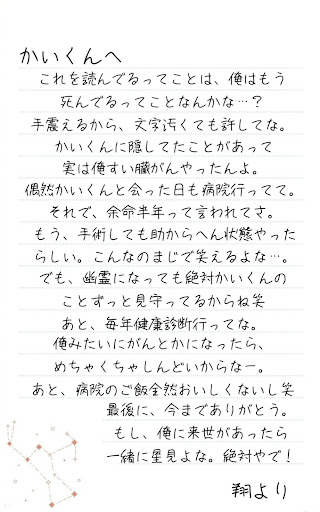 かいくんへ
これを読んでるってことは、俺はもう
死んでるってことなんかな…？
手震えるから、文字汚くても許してな。
かいくんに隠してたことがあって
実は俺すい臓がんやったんよ。
偶然かいくんと会った日も病院行ってて。
それで、余命半年って言われてさ。
もう、手術しても助からへん状態やった
らしい。こんなのまじで笑えるよな…。
でも、幽霊になっても絶対かいくんの
ことずっと見守ってるからね笑
あと、毎年健康診断行ってな。
俺みたいにがんとかになったら、
めちゃくちゃしんどいからなー。
あと、病院のご飯全然おいしくないし笑
最後に、今までありがとう。
もし、俺に来世があったら
一緒に星見よな。絶対やで！
翔より